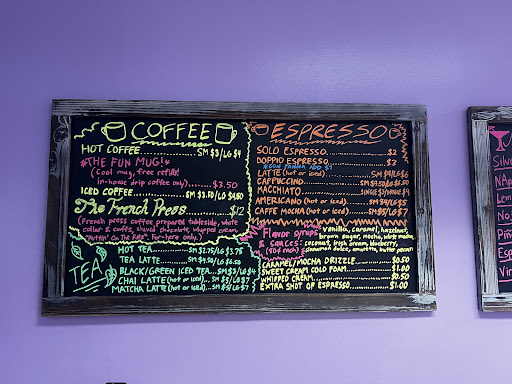 COFFEE
HOT COFFEE.......SM $3/LG $4
*THE FUN MUG!*
(Cool mug, free refills!
in-house drip coffee only)......$3.50
ICED COFFEE......SM $3.50/LG $4.50
The French Press......$12
(French press coffee prepared tableside, white
collar & cuffs, shaved chocolate, whipped cream
"Puttin' On The Ritz". For-here only.)
TEA
HOT TEA......SM $2.75/LG $3.75
TEA LATTE......SM $4.50/LG $5.50
BLACK/GREEN ICED TEA...SM $3/LG $4
CHAI LATTE (hot or iced)...SM $5/LG $7
MATCHA LATTE (hot or iced)...SM $5/LG $7
ESPRESSO
SOLO ESPRESSO......$2
DOPPIO ESPRESSO......$3
*CON PANNA ADD $1
LATTE (hot or iced)......SM $4/LG $6
CAPPUCCINO......SM $4.50/LG $6.50
MACCHIATO......
AMERICANO (hot or iced)......SM $4/LG $5
CAFFE MOCHA (hot or iced)......SM $5/LG $7
Flavor syrups
& sauces:
(50¢ each)
vanilla, caramel, hazelnut,
brown sugar, mocha, white mocha,
coconut, irish cream, blueberry,
cinnamon dolce, amaretto, butter pecan
CARAMEL/MOCHA DRIZZLE......$0.50
SWEET CREAM COLD FOAM......$1.00
WHIPPED CREAM......$0.50
EXTRA SHOT OF ESPRESSO......$1.00
Silve
Lem
No
Piñ
Esp
Vir